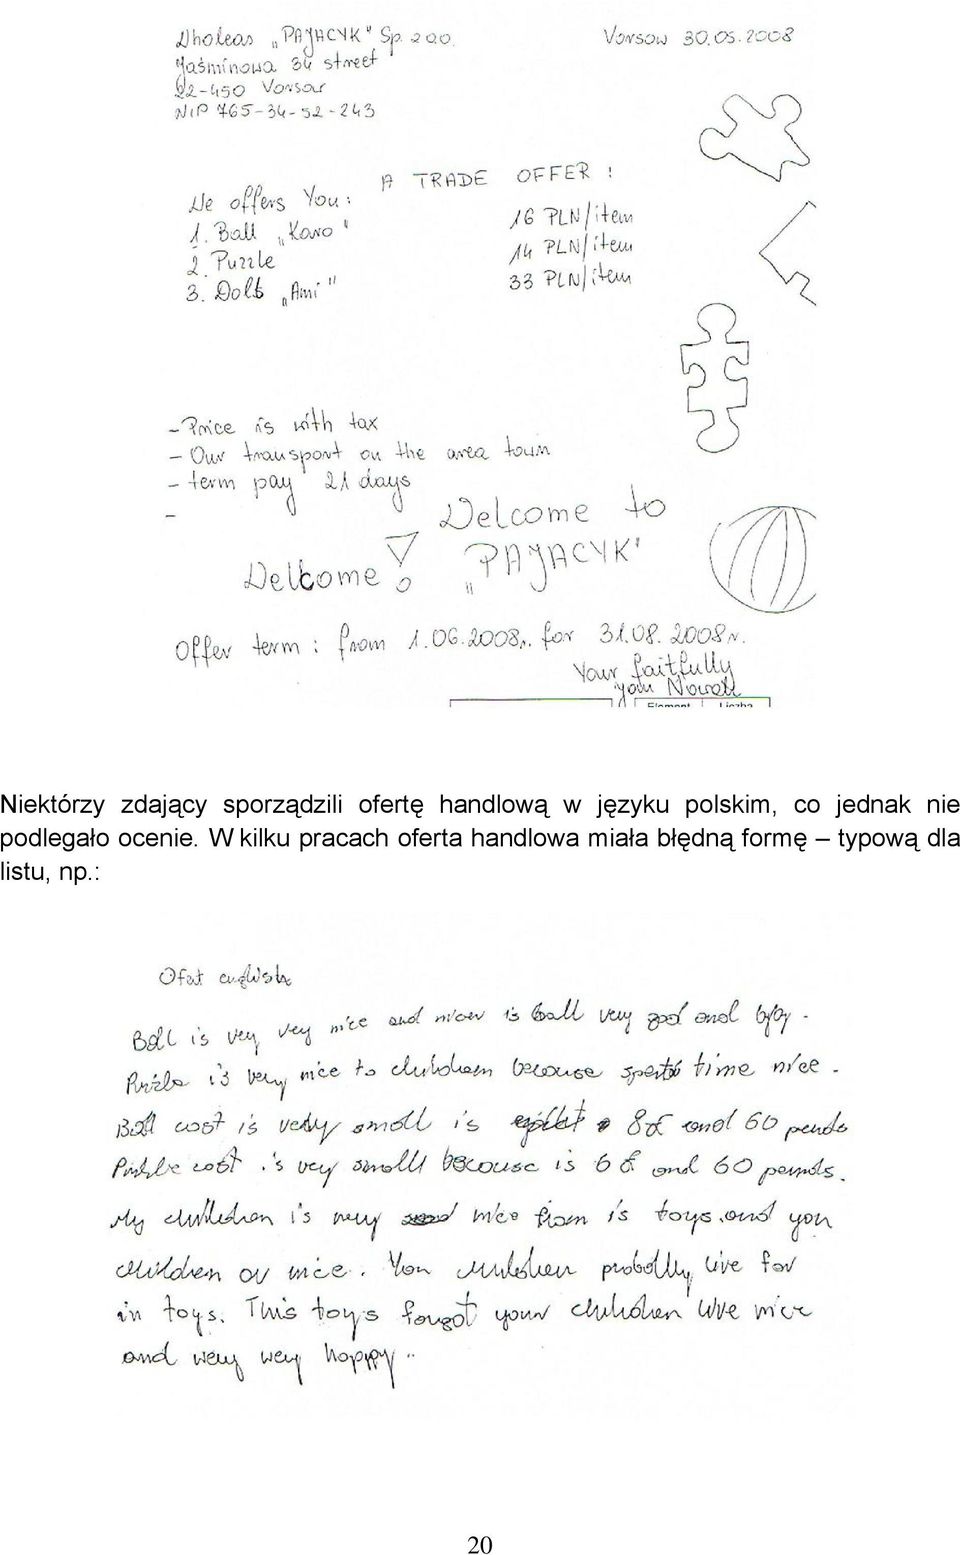 Wholeas „PAJACYK" Sp. z o.o. Vorsow 30.05.2008
Jaśminowa 34 street
22-450 Vorsov
NIP 765-34-52-243
A TRADE OFFER !
We offers You :
1. Ball „Karo" 16 PLN/item
2. Puzzle 14 PLN/item
3. Dolls „Ami" 33 PLN/item
- Price is with tax
- Our transport on the area town
- term pay 21 days
-
Welcome to
Welcome ! „PAJACYK"
Offer term : from 1.06.2008r. for 31.08.2008r.
Your faitfully
Jan Nowak
Element Liczba
Niektórzy zdający sporządzili ofertę handlową w języku polskim, co jednak nie
podlegało ocenie. W kilku pracach oferta handlowa miała błędną formę – typową dla
listu, np.:
Ofet
Ball is very very nice and is ball very god and
is very nice to because time nice.
Ball cost is very small is 8£ and 60 pends
cost is very small because is 6£ and 60 pewnds.
My is nice from is toys and you
or nice. You live for
in toys. This toys your live nice
and wery wery happy..
20